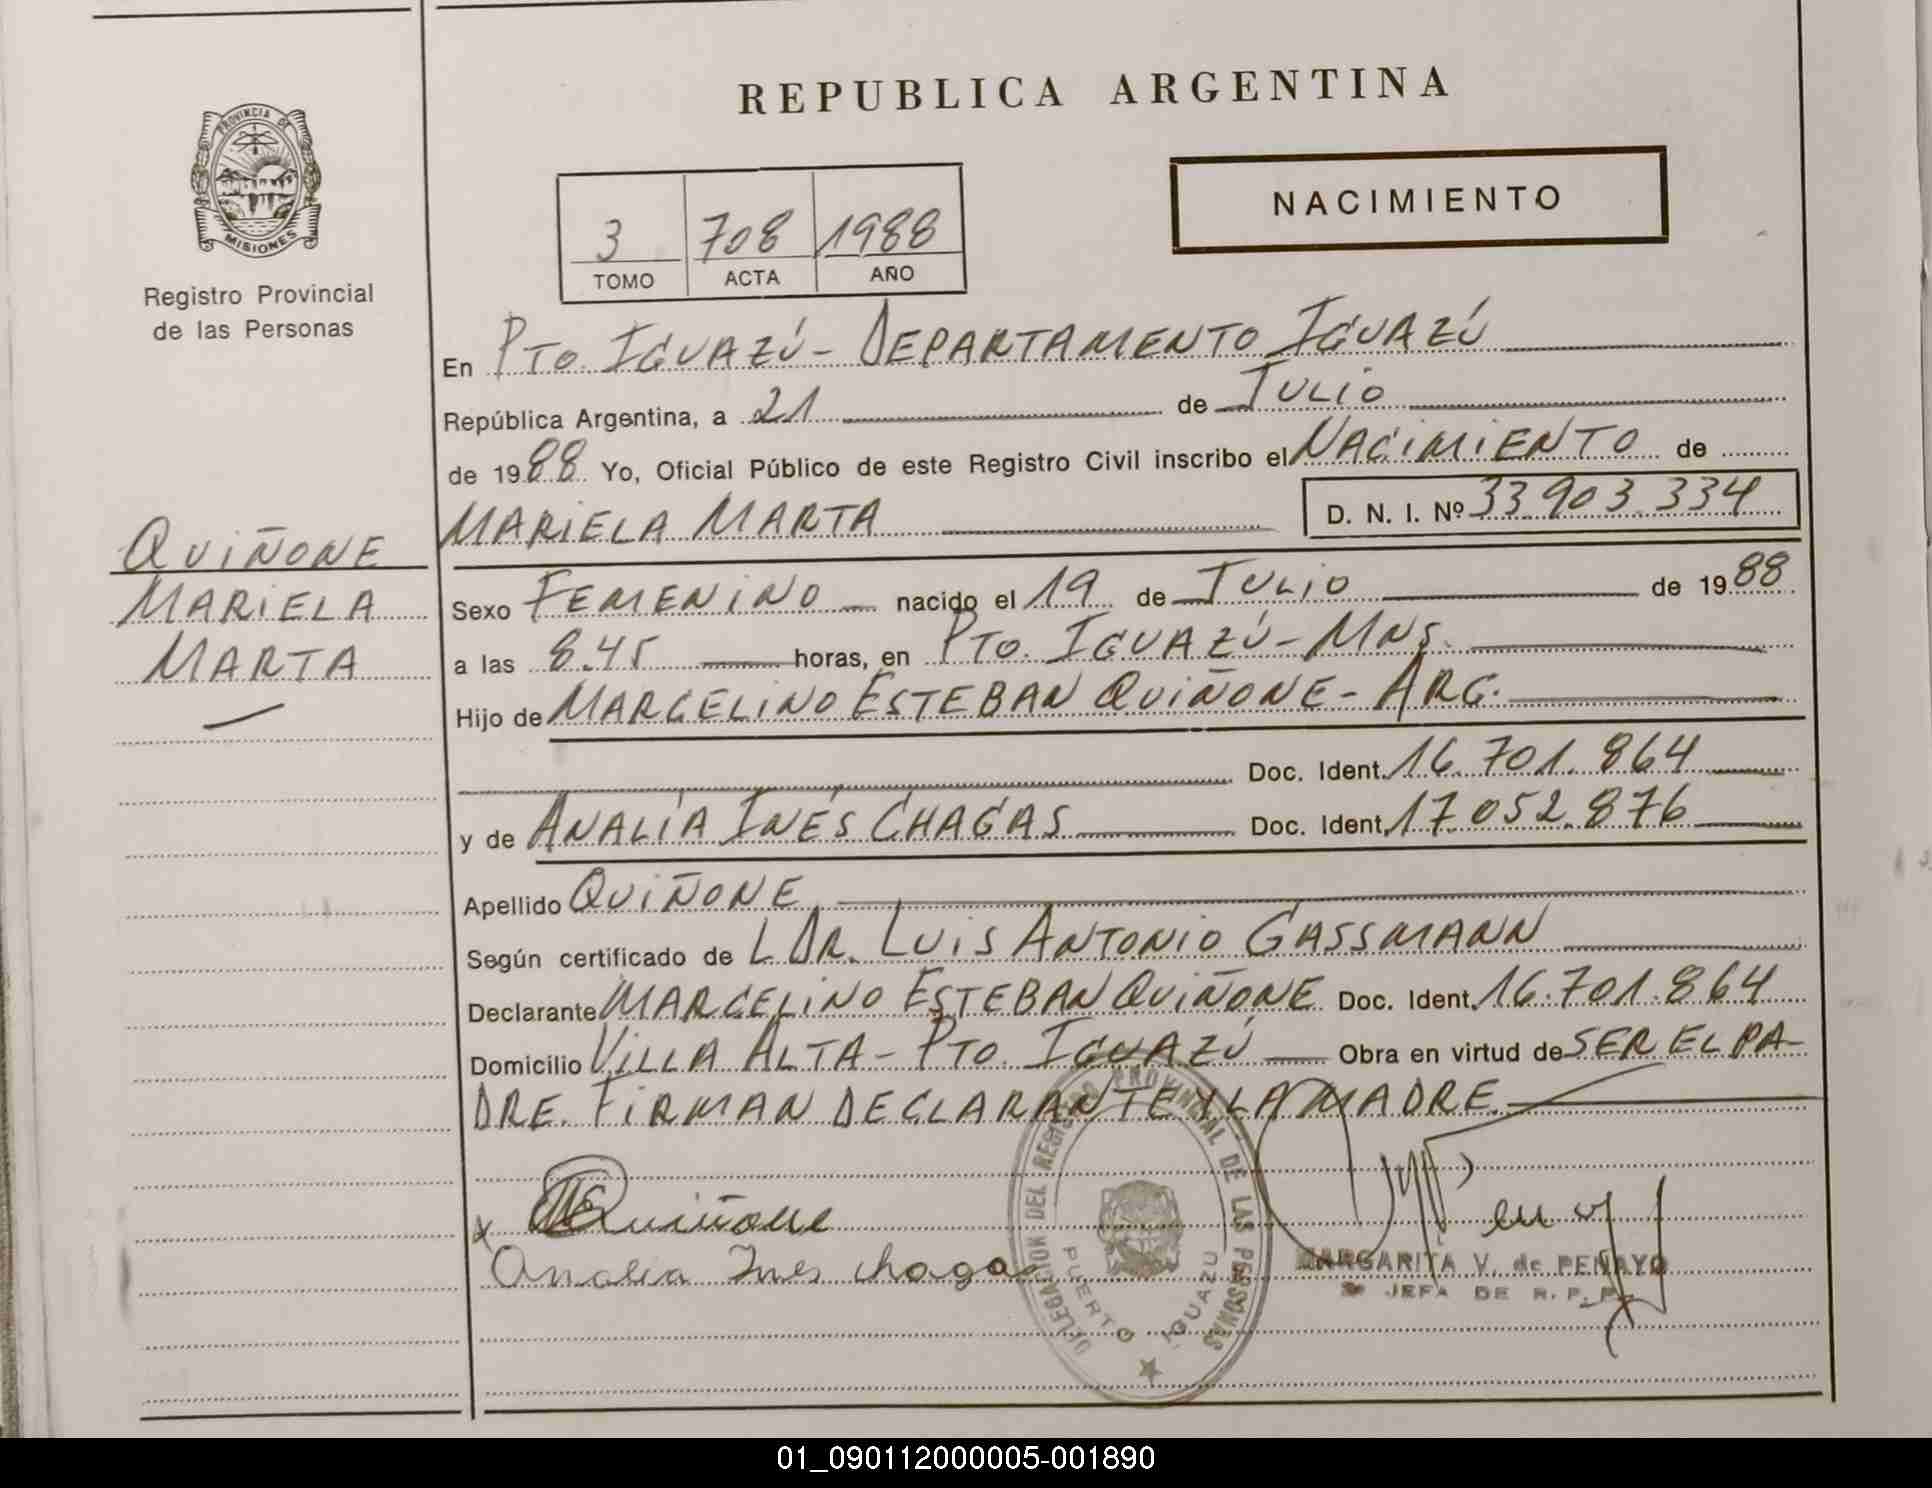 REPUBLICA ARGENTINA
PROVINCIA DE
MISIONES
Registro Provincial
de las Personas
NACIMIENTO
3 708 1988
TOMO ACTA AÑO
En PTO. IGUAZÚ - DEPARTAMENTO IGUAZÚ
República Argentina, a 21 de JULIO
de 1988 Yo, Oficial Público de este Registro Civil inscribo el NACIMIENTO de
MARIELA MARTA D. N. I. Nº 33.903.334
QUIÑONE
MARIELA
MARTA
Sexo FEMENINO nacido el 19 de JULIO de 1988
a las 8.45 horas, en PTO. IGUAZÚ - MNS.
Hijo de MARCELINO ESTEBAN QUIÑONE - ARG.
Doc. Ident. 16.701.864
y de ANALÍA INÉS CHAGAS Doc. Ident. 17.052.876
Apellido QUIÑONE
Según certificado de L DR. LUIS ANTONIO GASSMANN
Declarante MARCELINO ESTEBAN QUIÑONE Doc. Ident. 16.701.864
Domicilio VILLA ALTA - PTO. IGUAZÚ Obra en virtud de SER EL PA-
DRE. FIRMAN DECLARANTE Y LA MADRE.
x Quiñone
Analia Ines Chagas
DELEGACION DEL REGISTRO PROVINCIAL DE LAS PERSONAS
PUERTO IGUAZU
MARGARITA V. de PENAYO
JEFA DE R. P. P.
01_090112000005-001890